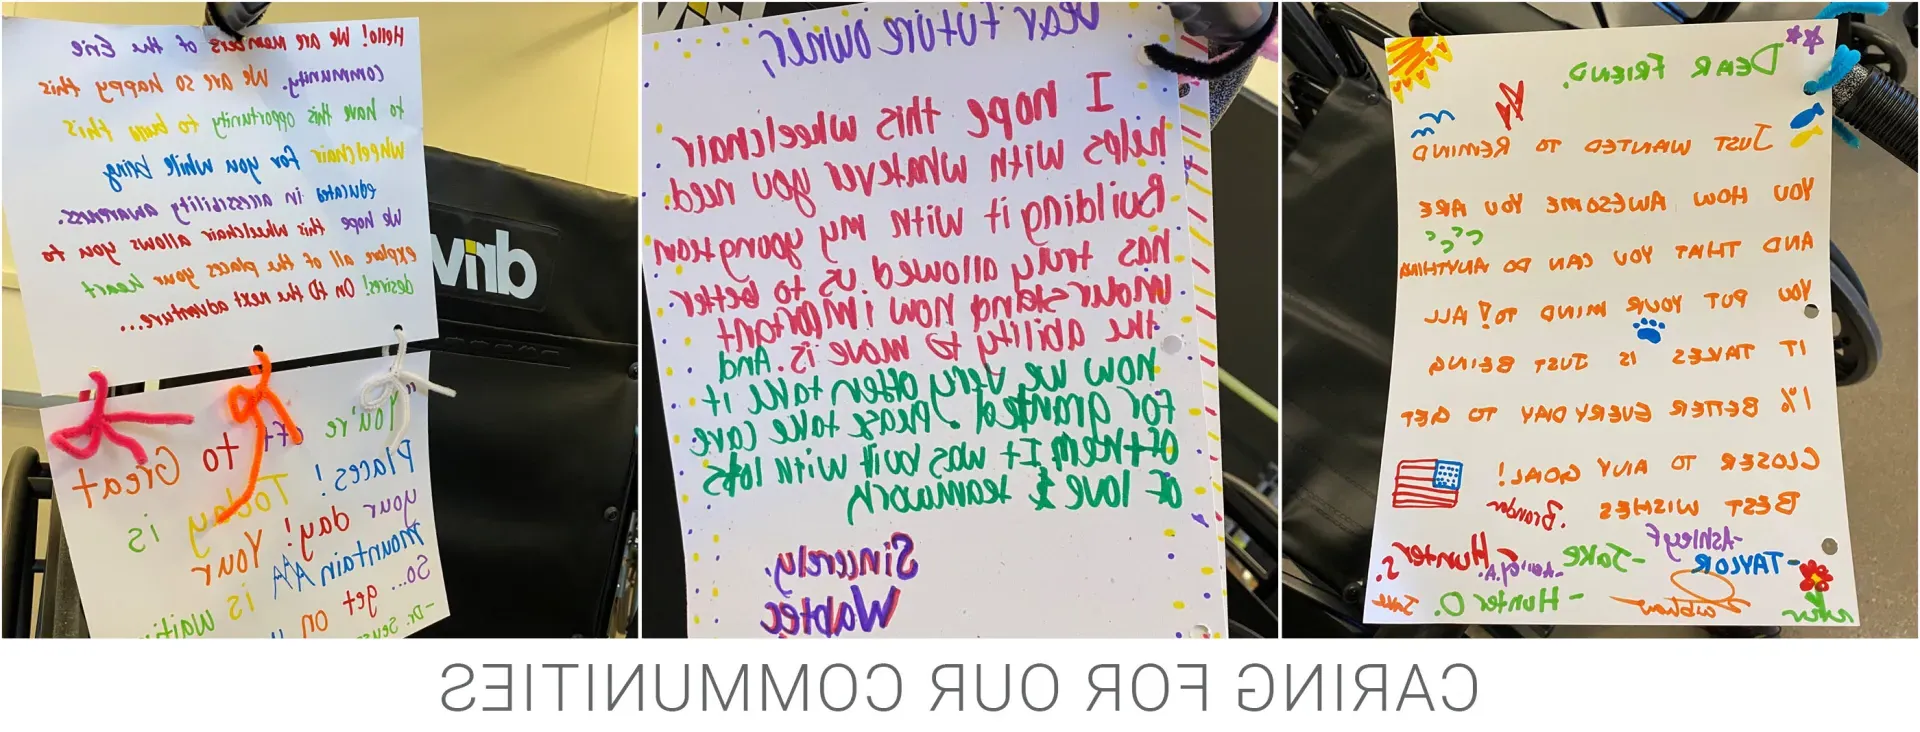 DEAR FRIEND,
JUST WANTED TO REMIND
YOU HOW AWESOME YOU ARE
AND THAT YOU CAN DO ANYTHING
YOU PUT YOUR MIND TO! ALL
IT TAKES IS JUST BEING
1% BETTER EVERY DAY TO GET
CLOSER TO ANY GOAL!
BEST WISHES
Brandon.
-Ashley F
-TAYLOR
-Jake
Hunter S.
-Hunter O.
Jake
Dear Future owner,
I hope this wheelchair
helps with whatever you need.
Building it with my young team
has truly allowed us to better
how important
the ability to move is. And
how we very often take it
for granted. Please take care
of them It was built with lots
of love & teamwork
Sincerely,
Wabtec
Hello! We are members of the Erie
Community. We are so happy this
to have this opportunity to build this
wheelchair for you while being
educated in accessibility awareness.
We hope this wheelchair allows you to
explore all of the places your heart
desires! On to the next adventure...
driv
"You're off to Great
Places! Today is
your day! Your
mountain is waiti
So... get on
-Dr. Seuss
CARING FOR OUR COMMUNITIES